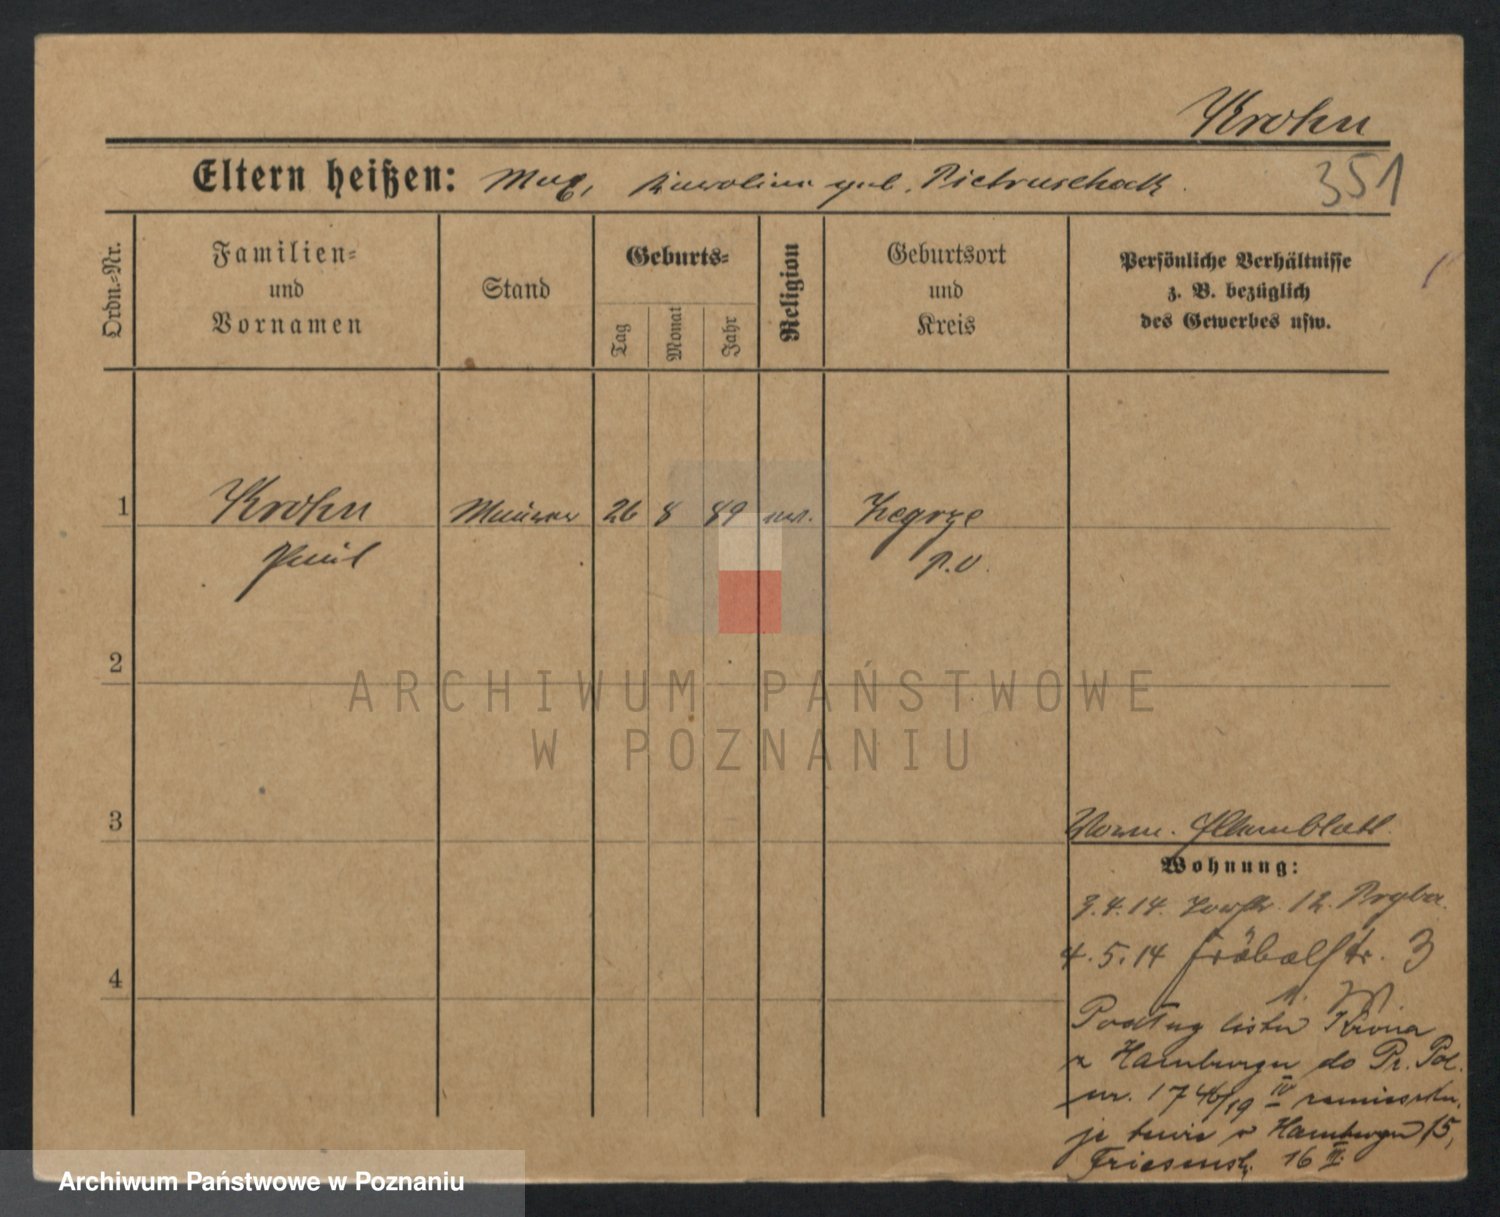 Krohn
Eltern heißen: Max, Karolina geb. Pietruschack
351
Ordn.-Nr.
Familien-
und
Vornamen
Stand
Geburts-
Tag
Monat
Jahr
Religion
Geburtsort
und
Kreis
Persönliche Verhältnisse
z. B. bezüglich
des Gewerbes usw.
1
Krohn
Paul
Maurer
26
8
89
ev.
Zegrze
P.O.
2
3
4
Wohnung:
3.4.14. 12.
4.5.14 Fröbelstr. 3
Podług listu
z Hamburga do Pr. Pol.
nr. 1746/19 IV
je Hamburgu 15,
Friesenstr. 16 III
ARCHIWUM PAŃSTWOWE
W POZNANIU
Archiwum Państwowe w Poznaniu